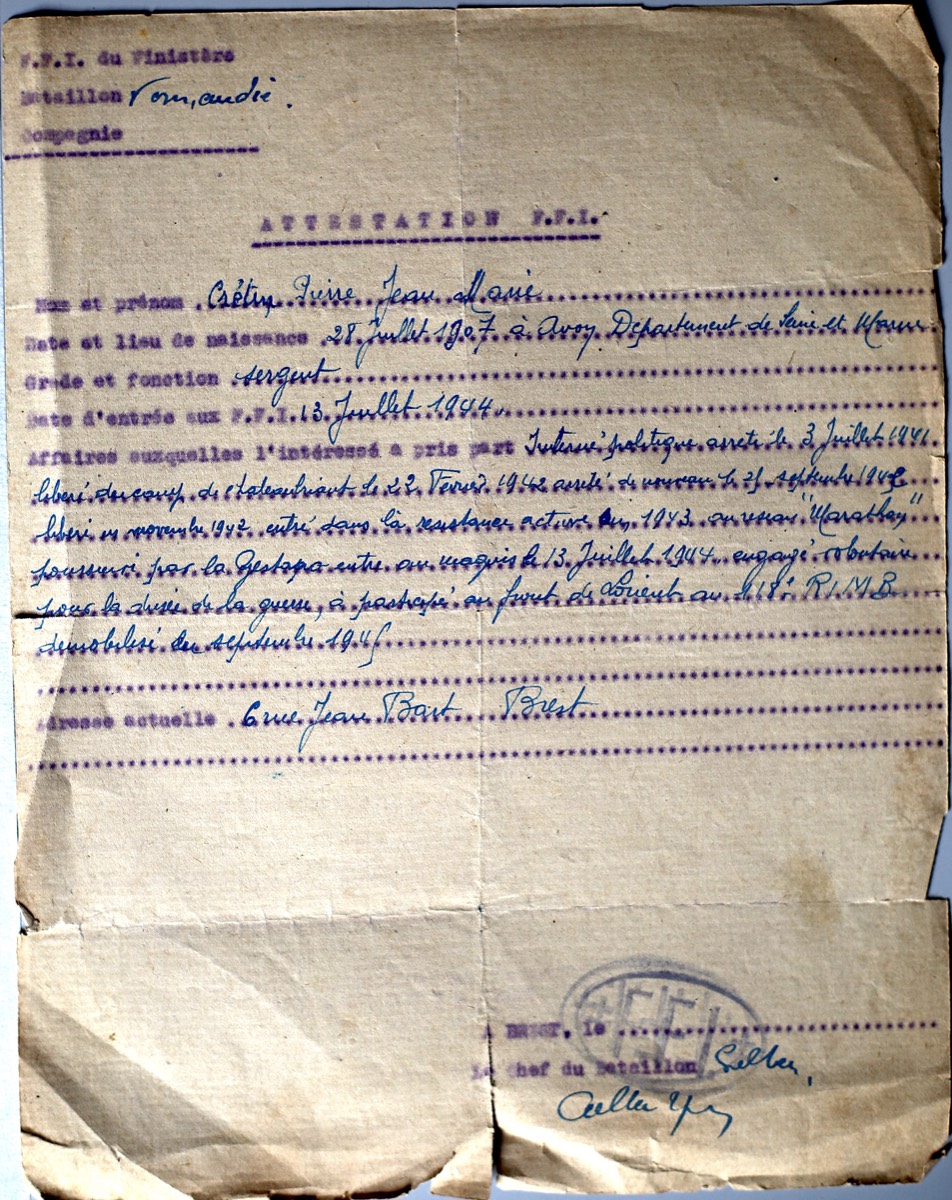 F.F.I. du Finistère
Bataillon Normandie.
Compagnie
ATTESTATION F.F.I.
Nom et prénom Crétin Pierre Jean Marie
Date et lieu de naissance 28 Juillet 1907 à Avon Département de Seine et Marne
Grade et fonction sergent
Date d'entrée aux F.F.I. 13 Juillet 1944.
Affaires auxquelles l'intéressé a pris part Interné politique arreté le 3 Juillet 1941
liberé du camp de chateaubriant le 22 Fevrier 1942 arreté de nouveau le 25 septembre 1942
liberé en novembre 1942 entré dans la resistance active en 1943 au reseau "Marathon"
poursuivi par la Gestapo entre au maquis le 13 Juillet 1944 engagé volontaire
pour la durée de la guerre, à participé au front de Lorient au 118e R.I.M.B.
demobilisé en septembre 1945
Adresse actuelle 6 rue Jean Bart Brest
A BREST, le
Le Chef du Bataillon
FFI